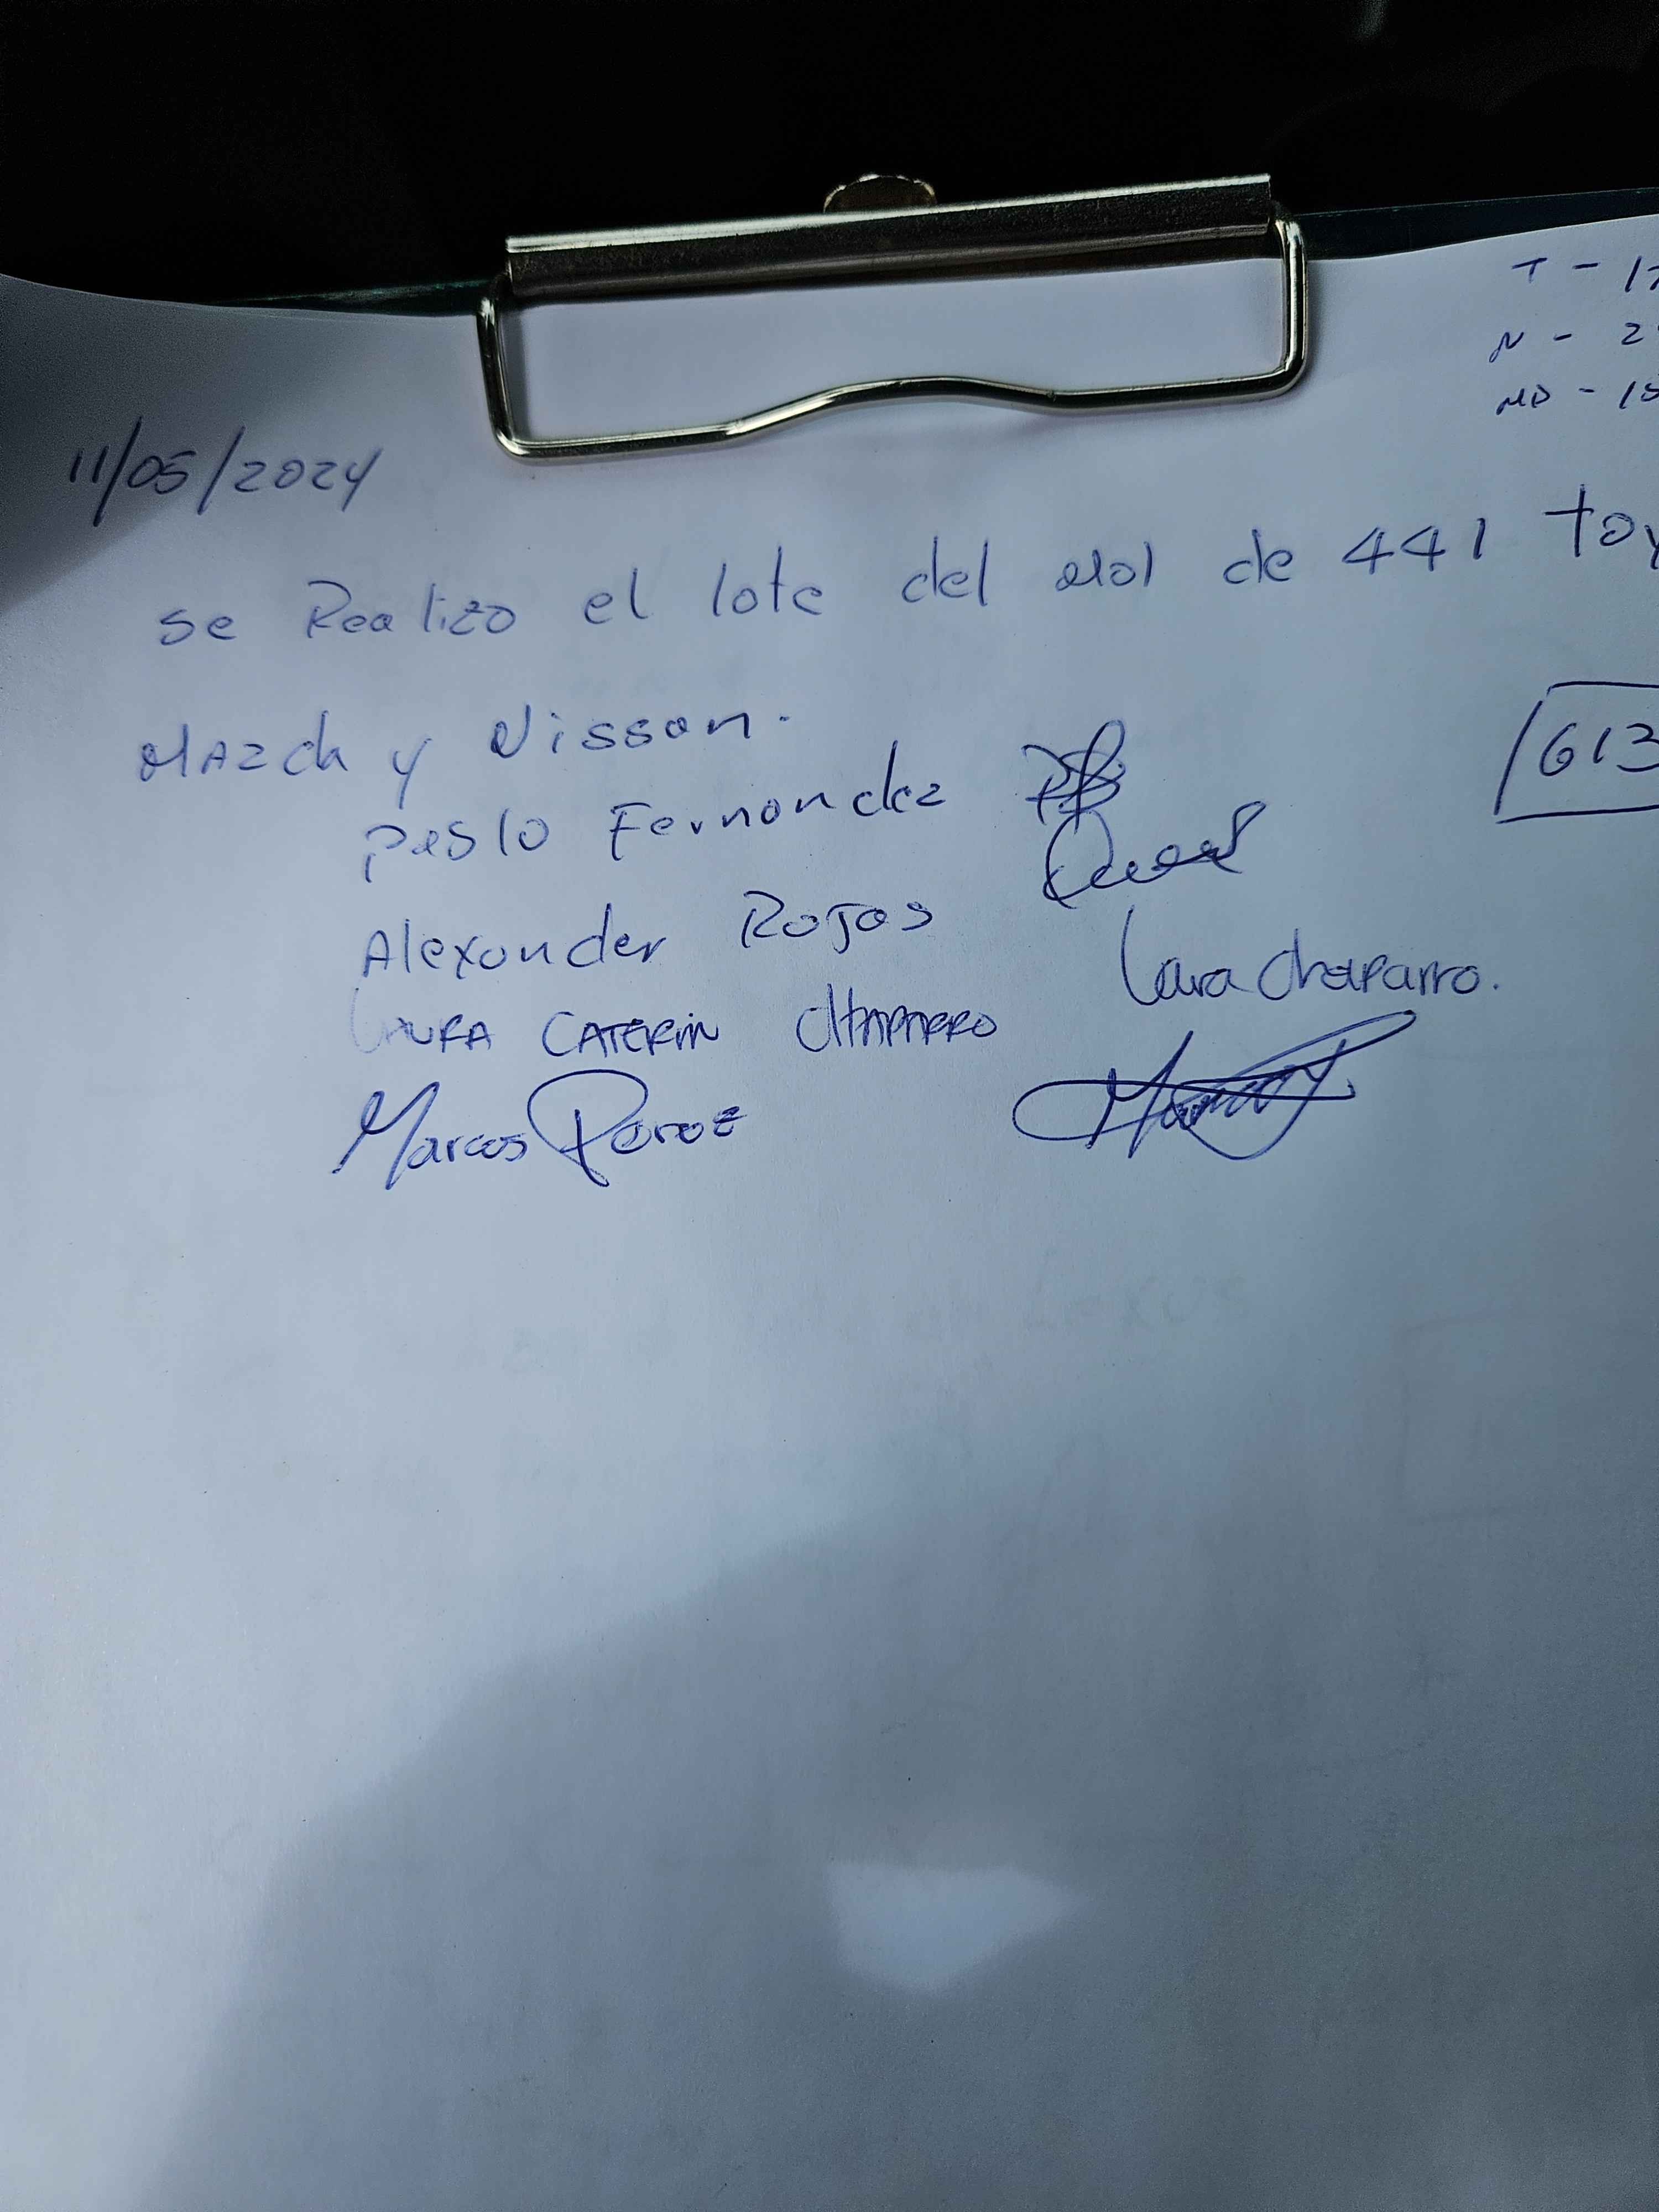 T - 17
N - 2
MD - 15
11/05/2024
se Realizo el lote del Mol de 441 toy
Mazda y Nissan.
613
Pablo Fernandez
Alexander Rojas
Laura Chaparro.
LAURA CATERIN CHAPARRO
Marcos Perez